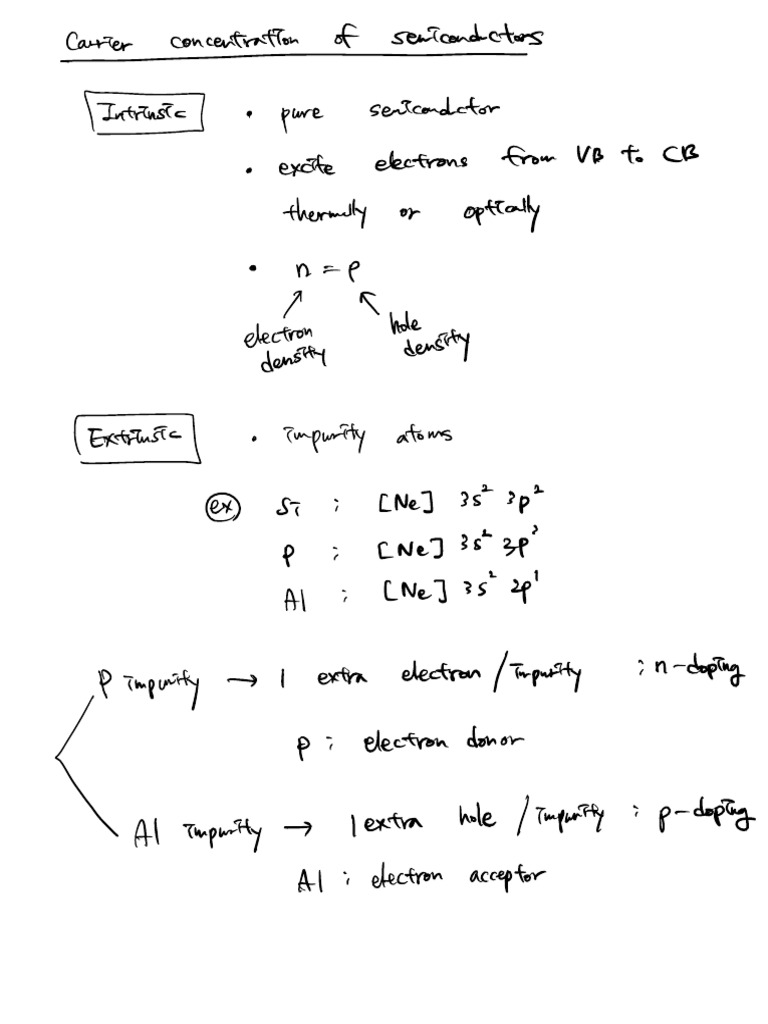 Carrier concentration of semiconductors
Intrinsic • pure semicondctor
• excite electrons from VB to CB
thermally or optically
• n = p
electron density
hole density
Extrinsic • impurity atoms
ex Si ; [Ne] 3s² 3p²
P ; [Ne] 3s² 3p³
Al ; [Ne] 3s² 3p¹
P impurity → 1 extra electron / impurity ; n-doping
P ; electron donor
Al impurity → 1 extra hole / impurity ; p-doping
Al ; electron acceptor